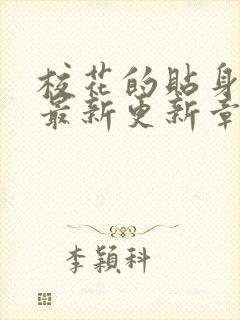 校花的貼身
最新更新章
李穎科